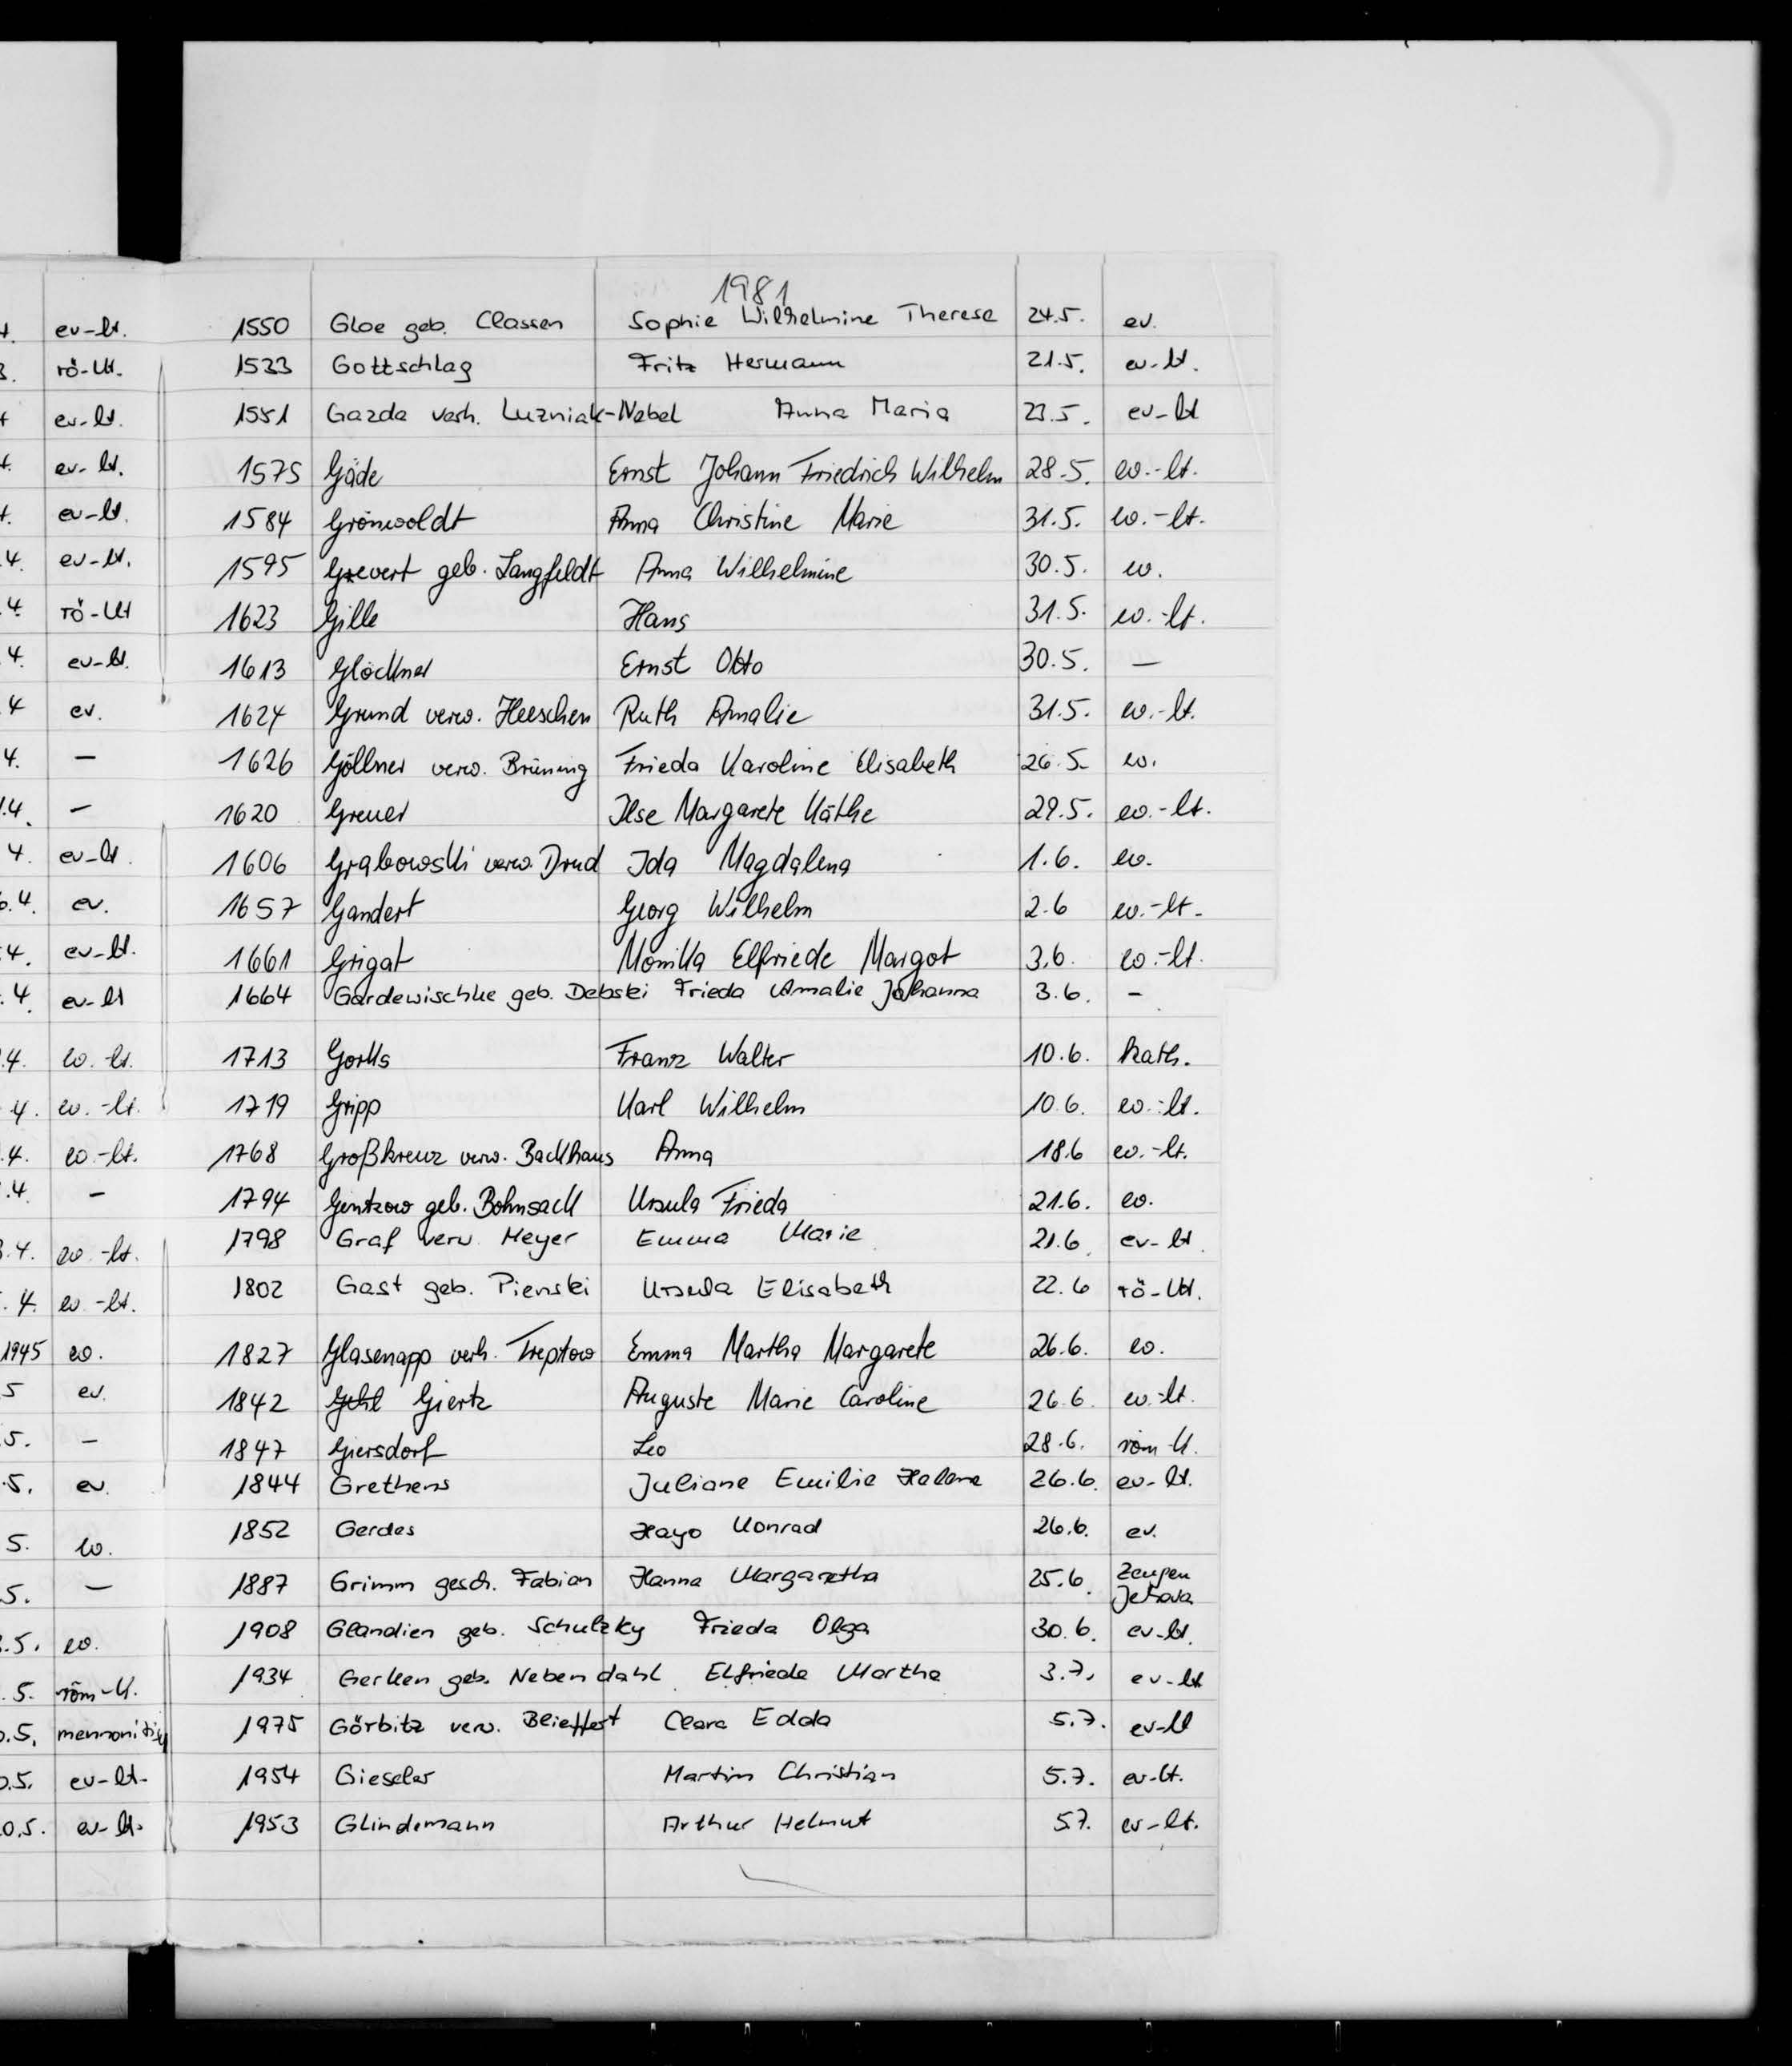 1981
ev-lt. 1550 Gloe geb. Classen Sophie Wilhelmine Therese 24.5. ev.
rö-kt. 1533 Gottschlag Fritz Hermann 21.5. ev-lt.
ev-lt. 1551 Gazda verh. Luzniak-Nebel Anna Maria 23.5. ev-lt
ev-lt. 1575 Gäde Ernst Johann Friedrich Wilhelm 28.5. ev.-lt.
ev-lt. 1584 Grönwoldt Anna Christine Marie 31.5. ev.-lt.
4. ev-lt. 1595 Grevert geb. Langfeldt Anna Wilhelmine 30.5. ev.
4. rö-kt 1623 Gille Hans 31.5. ev.-lt.
4. ev-lt. 1613 Glöckner Ernst Otto 30.5. —
4 ev. 1624 Grund verw. Heeschen Ruth Amalie 31.5. ev.-lt.
4. — 1626 Göllner verw. Brüning Frieda Karoline Elisabeth 26.5. ev.
.4. — 1620 Greuer Ilse Margarete Käthe 29.5. ev.-lt.
4. ev-lt. 1606 Grabowski verw. Drud Ida Magdalena 1.6. ev.
.4. ev. 1657 Gandert Georg Wilhelm 2.6 ev.-lt.
4. ev-lt. 1661 Grigat Monika Elfriede Margot 3.6. ev.-lt.
.4. ev-lt 1664 Gardewischke geb. Debski Frieda Amalie Johanna 3.6. –
.4. ev.-lt. 1713 Gorks Franz Walter 10.6. kath.
4. ev.-lt. 1719 Gripp Karl Wilhelm 10.6. ev.-lt.
.4. ev.-lt. 1768 Großkreuz verw. Backhaus Anna 18.6 ev.-lt.
.4. – 1794 Gentzow geb. Bohnsack Ursula Frieda 21.6. ev.
.4. ev.-lt. 1798 Graf verw Meyer Emma Marie 21.6. ev-lt.
.4. ev.-lt. 1802 Gast geb. Pienski Ursula Elisabeth 22.6 rö-kt.
1945 ev. 1827 Glasenapp verh. Treptow Emma Martha Margarete 26.6. ev.
5 ev. 1842 Gehl Giertz Auguste Marie Caroline 26.6. ev.-lt.
5. – 1847 Giersdorf Leo 28.6. röm-k.
.5. ev. 1844 Grethens Juliane Emilie Helene 26.6. ev-lt.
5. ev. 1852 Gerdes Hayo Konrad 26.6. ev.
5. — 1887 Grimm gesch. Fabian Hanna Margaretha 25.6. Zeugen
Jehova
.5. ev. 1908 Glandien geb. Schulzky Frieda Olga 30.6. ev-lt.
.5. röm-k. 1934 Gerken geb. Nebendahl Elfriede Martha 3.7. ev-lt
.5. 1975 Görbitz verw. Clara Edda 5.7. ev-lt
.5. ev-lt. 1954 Gieseler Martin Christian 5.7. ev-lt.
0.5. ev-lt. 1953 Glindemann Arthur Helmut 5.7. ev-lt.